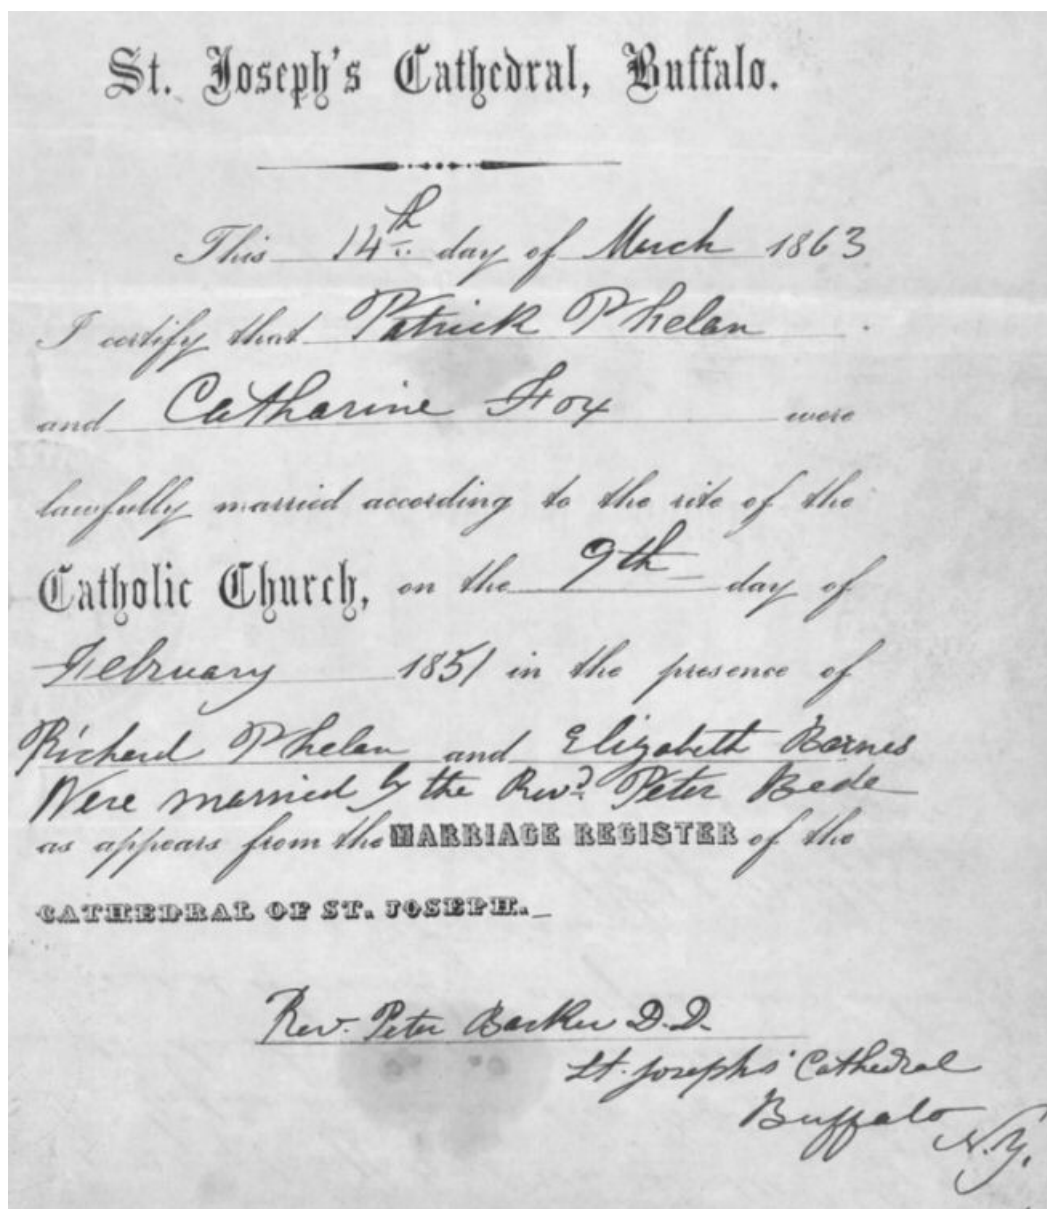 St. Joseph's Cathedral, Buffalo.
This 14th day of March 1863
I certify that Patrick Phelan
and Catharine Fox were
lawfully married according to the rite of the
Catholic Church, on the 9th day of
February 1851 in the presence of
Richard Phelan and Elizabeth Barnes
Were married by the Revd. Peter Bede
as appears from the MARRIAGE REGISTER of the
CATHEDRAL OF ST. JOSEPH.
Rev. Peter Barker D.D.
St. Joseph's Cathedral
Buffalo
N.Y.